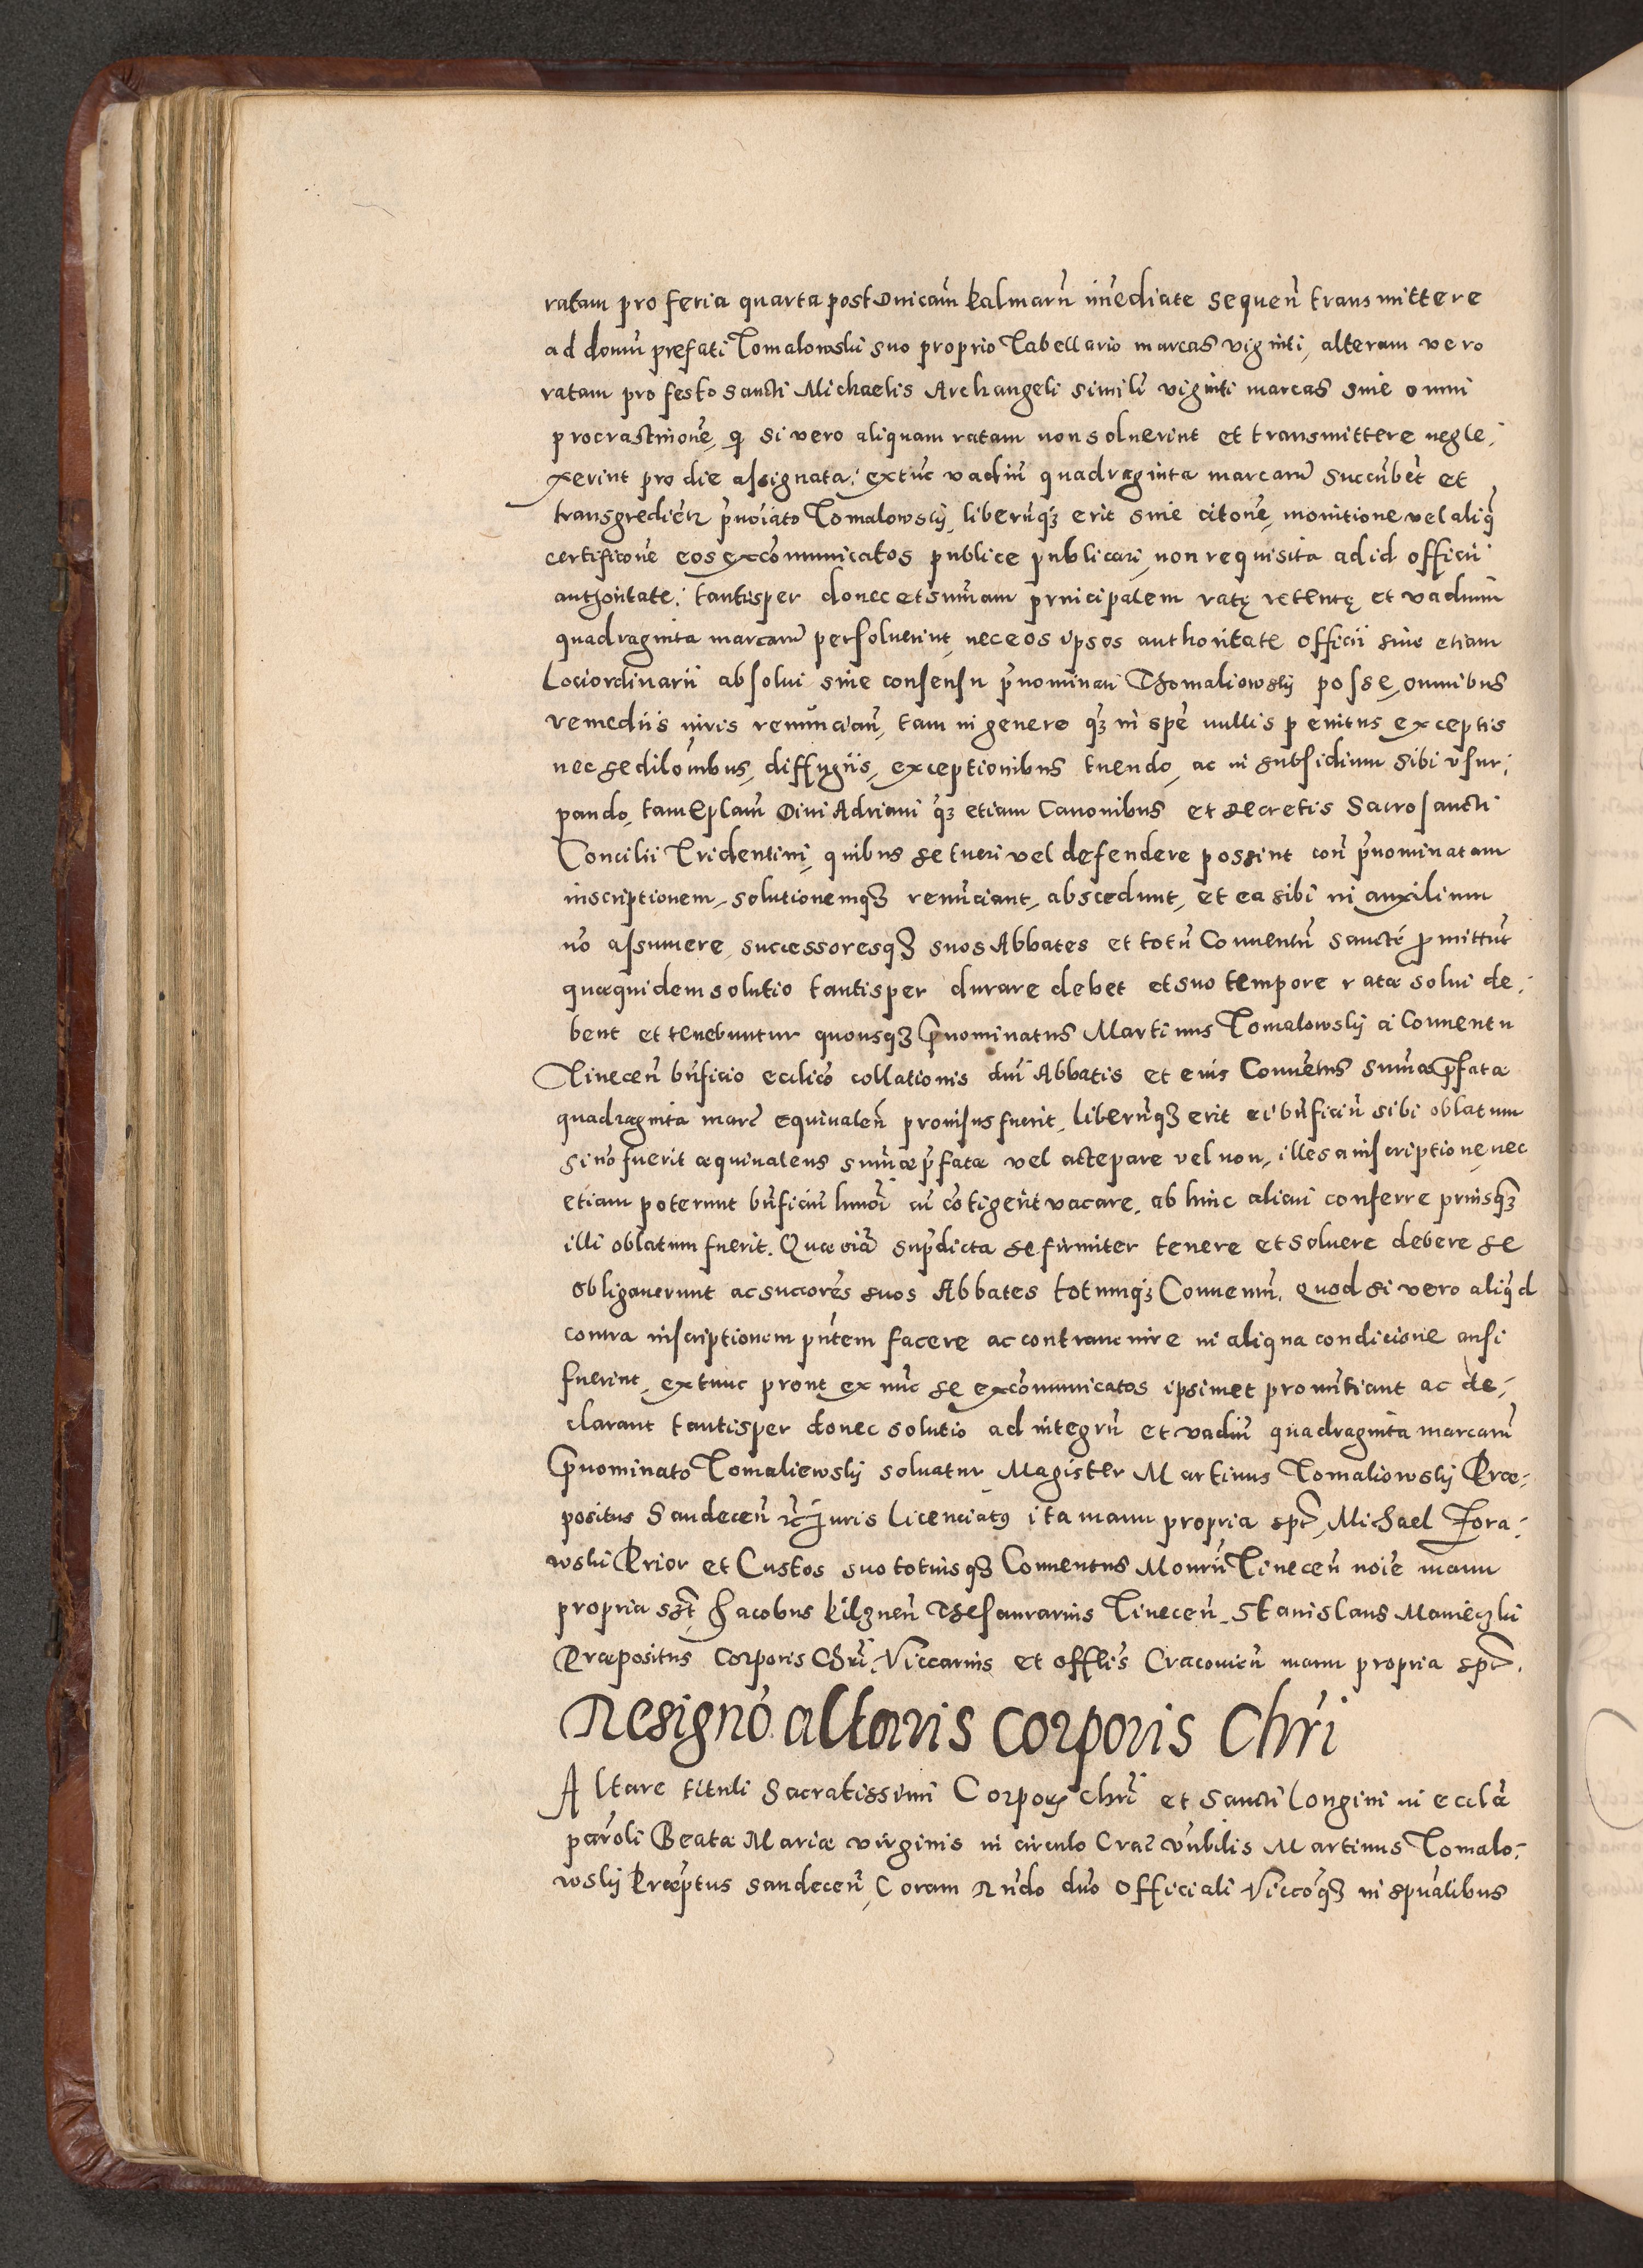 ratam pro feria quarta post Dnicam̃ kalmaru᷃ im̃ediate sequen̄ transmittere
ad domu᷃ prefati Tomalowski suo proprio Tabellario marcas viginti, alteram vero
ratam pro festo sancti Michaelis Archangeli simili᷃ viginti marcas sine omni
procrastinõne, q̃ si vero aliquam ratam non soluerint et transmittere negle,
xerint pro die assignata: extũc vadiũ quadraginta marcarũ succũbẽt et
transgrediẽtr p̃noĩato Tomalowslij, liberũqȝ erit sine citõne, monitione vel aliq̃
certificõne eos excõmunicatos publice publicari, non requisita ad id officii
authoritate: tantisper donec et sum̃am principalem ratę retentę et vadium
quadraginta marcarũ persoluerint, nec eos ipsos authoritate officii siue etiam
Loci ordinarii absolui sine consensu p̃nominati Thomaliowslij posse, omnibus
remediis iuris renũcian̄, tam in genere q̃ȝ in spẽ nullis penitus exceptis
nec se dilõnibus, diffugiis, exceptionibus tuendo, ac in subsidium sibi vsur,
pando, tam Ep̃lam̃ Diui Adriani q̃ȝ etiam Canonibus et decretis Sacrosancti
Concilii Tridentini, quibus se tueri vel defendere possint con̄ p̃nominatam
inscriptionem, solutionemqȝ renũciant, abscedunt, et ea sibi in auxilium
nõ assumere, successoresqȝ suos Abbates et totũ Conuentũ sanctè ꝓmittũt
quæquidem solutio tantisper durare debet et suo tempore ratæ solui de,
bent et tenebuntur quousqȝ p̃nominatus Martinus Tomalowslij à Conuentu
Tinecen̄ bñficio ecclico collationis dnĩ Abbatis et eius Conuẽtus sum̃æ p̃fatæ
quadraginta marc̃ equiualen̄ prouisus fuerit, liberũqȝ erit ei bñficiũ sibi oblatum
si nõ fuerit æquiualens sum̃æ p̃fatæ vel acceptare vel non, illesa inscriptione, nec
etiam poterunt bñficiũ hmõi cũ cõtigerit vacare, ab hinc alicui conferre priusqȝ
illi oblatum fuerit. Quæ oĩa sup̃dicta se firmiter tenere et soluere debere se
obligauerunt ac succores̃ suos Abbates totumqȝ Conuentũ. Quod si vero aliq̃d
contra inscriptionem pñtem facere ac contrauenire in aliqua condicione ausi
fuerint, extunc prout ex nũc se excõmunicatos ipsimet pronũtiant ac de,
clarant tantisper donec solutio ad integrũ et vadiũ quadraginta marcarũ
p̃nominato Tomaliewslij soluatur Magister Martinus Tomaliowslij Præ,
positus Sandecen̄ Iuris Licenciatꝯ ita manu propria spt, Michael Zora,
wski Prior et Custos suo totiusqȝ Conuentus Monrij̃ Tinecen̄ noĩe manu
propria spt, Jacobus kilznen̄ Thesaurarius Tinecen̄, Stanislaus Manieczki
Præpositus Corporis Chri᷃, Viccarius et offlis̃ Cracouien̄ manu propria spt.
Resignõ altaris Corporis Chr̃i
Altare tituli Sacratissimi Corporis Chr̃i et Sancti Longini in ecclã
parõli Beatæ Mariæ virginis in circulo Crac̃ vñbilis Martinus Tomalo,
wslij Præp̃tus Sandecen̄, Coram Rñdo dño Officiali Viccõqȝ in spũalibus